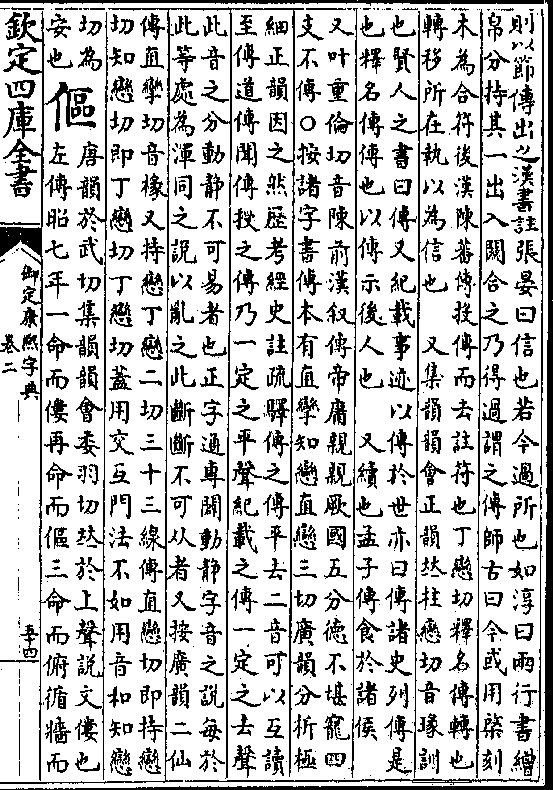 則以節傳出之漢書註張晏曰信也若今過所也如淳曰兩行書繒
帛分持其一出入關合之乃得過謂之傳師古曰今或用棨刻
木為合符後漢陳蕃傳投傳而去註符也丁戀切釋名傳轉也
轉移所在執以為信也　又集韻韻會正韻𠀤柱戀切音瑑訓
也賢人之書曰傳又紀載事迹以傳於世亦曰傳諸史列傳是
也釋名傳傳也以傳示後人也　又續也孟子傳食於諸侯
又叶重倫切音陳前漢叙傳帝庸親親厥國五分德不堪寵四
支不傳○按諸字書傳本有直攣知戀直戀三切廣韻分析極
細正韻因之然歷考經史註疏驛傳之傳平去二音可以互讀
至傳道傳聞傳授之傳乃一定之平聲紀載之傳一定之去聲
此音之分動靜不可易者也正字通專闢動靜字音之說每於
此等處為渾同之說以亂之此斷斷不可从者又按廣韻二仙
傳直攣切音椽又持戀丁戀二切三十三線傳直戀切即持戀
切知戀切即丁戀切丁戀切蓋用交互門法不如用音和知戀
切為
安也
傴
唐韻於武切集韻韻會委羽切𠀤於上聲說文僂也
左傳昭七年一命而僂再命而傴三命而俯循牆而
欽定四庫全書
御定康熙字典
卷二
五十四